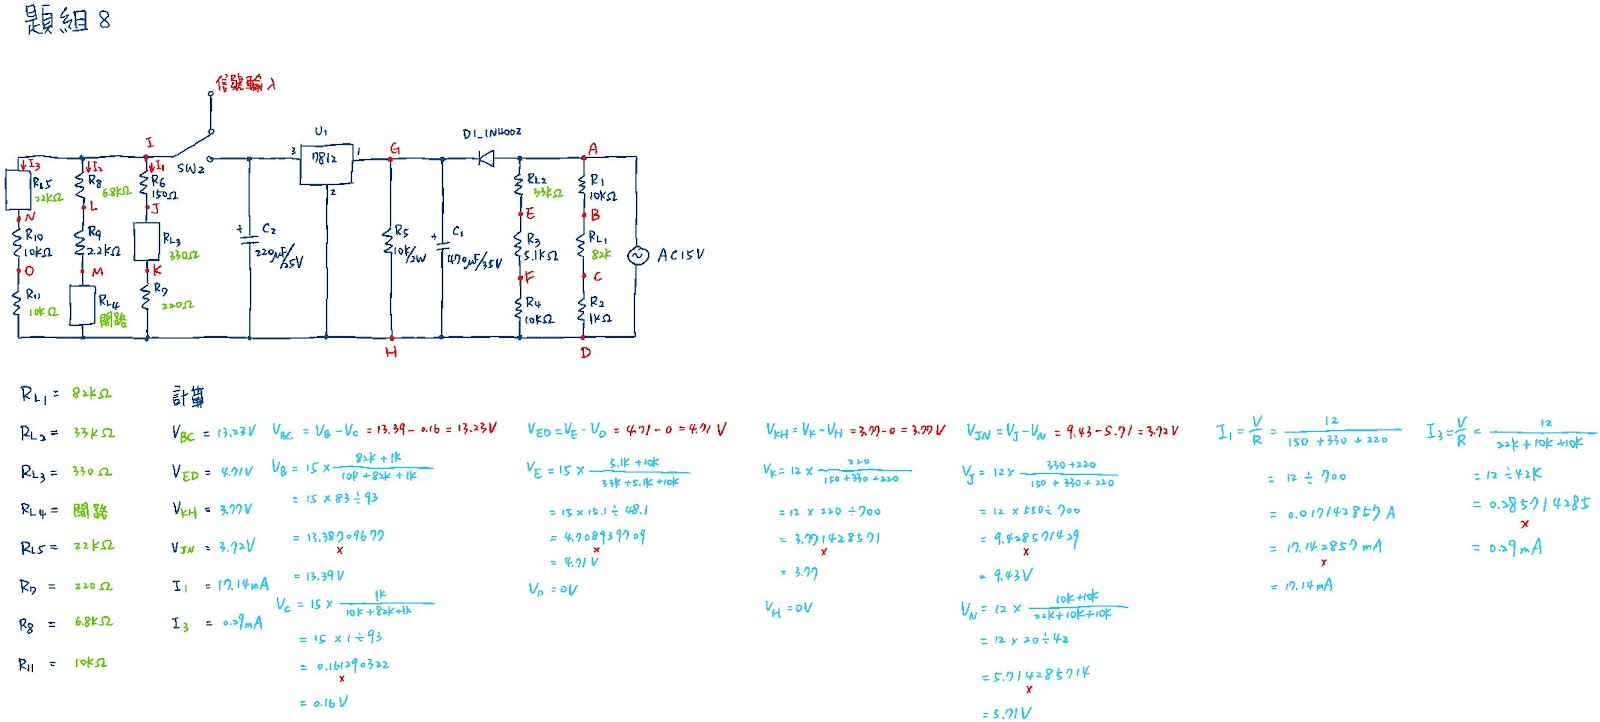 題組 8
信號輸入
I
SW2
3
U1
7812
1
2
G
D1_1N4002
A
I3
I2
I1
RL5
22kΩ
R8
6.8kΩ
R6
150Ω
RL2
33kΩ
R1
10kΩ
N
L
J
E
B
R10
10kΩ
R9
2.2kΩ
RL3
330Ω
+
C2
220μF/25V
R5
10k/2W
+
C1
470μF/35V
R3
5.1kΩ
RL1
82k
AC15V
O
M
K
F
C
R11
10kΩ
RL4
開路
R7
220Ω
R4
10kΩ
R2
1kΩ
H
D
RL1 = 82kΩ
RL2 = 33kΩ
RL3 = 330Ω
RL4 = 開路
RL5 = 22kΩ
R7 = 220Ω
R8 = 6.8kΩ
R11 = 10kΩ
計算
VBC = 13.23V
VED = 4.71V
VKH = 3.77V
VJN = 3.72V
I1 = 17.14mA
I3 = 0.29mA
VBC = VB - VC = 13.39 - 0.16 = 13.23V
VB = 15 × (82k + 1k) / (10k + 82k + 1k)
= 15 × 83 ÷ 93
= 13.38709677
×
= 13.39V
VC = 15 × 1k / (10k + 82k + 1k)
= 15 × 1 ÷ 93
= 0.161290322
×
= 0.16V
VED = VE - VD = 4.71 - 0 = 4.71V
VE = 15 × (5.1k + 10k) / (33k + 5.1k + 10k)
= 15 × 15.1 ÷ 48.1
= 4.708939709
×
= 4.71V
VD = 0V
VKH = VK - VH = 3.77 - 0 = 3.77V
VK = 12 × 220 / (150 + 330 + 220)
= 12 × 220 ÷ 700
= 3.771428571
×
= 3.77
VH = 0V
VJN = VJ - VN = 9.43 - 5.71 = 3.72V
VJ = 12 × (330 + 220) / (150 + 330 + 220)
= 12 × 550 ÷ 700
= 9.428571429
×
= 9.43V
VN = 12 × (10k + 10k) / (22k + 10k + 10k)
= 12 × 20 ÷ 42
= 5.714285714
×
= 5.71V
I1 = V/R = 12 / (150 + 330 + 220)
= 12 ÷ 700
= 0.017142857A
= 17.142857mA
×
= 17.14mA
I3 = V/R = 12 / (22k + 10k + 10k)
= 12 ÷ 42k
= 0.285714285
×
= 0.29mA